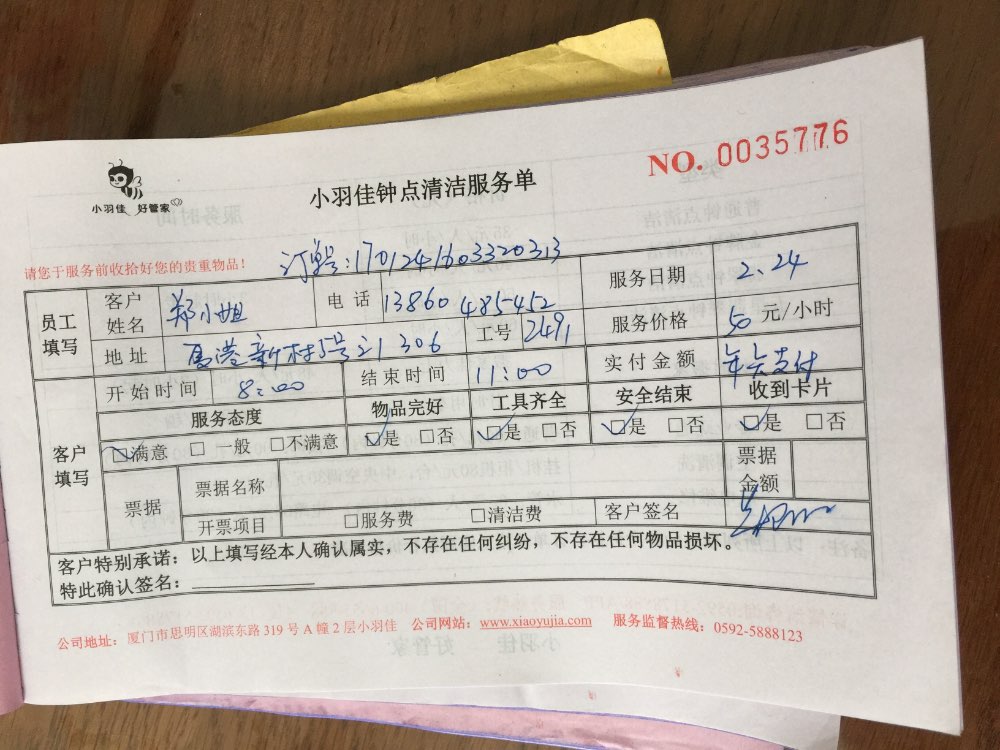 NO. 0035776
小羽佳 好管家
小羽佳钟点清洁服务单
请您于服务前收拾好您的贵重物品!
订单号:1701241603320313
员工填写
客户姓名 郑小姐 电话 13860 485452 服务日期 2.24
地址 高港新村5号21 306 工号 2491 服务价格 50 元/小时
客户填写
开始时间 8:00 结束时间 11:00 实付金额 年卡支付
服务态度 物品完好 工具齐全 安全结束 收到卡片
☑满意 □ 一般 □不满意 ☑是 □否 ☑是 □否 ☑是 □否 ☑是 □否
票据 票据名称 票据金额
开票项目 □服务费 □清洁费 客户签名
客户特别承诺:以上填写经本人确认属实,不存在任何纠纷,不存在任何物品损坏。
特此确认签名:
公司地址:厦门市思明区湖滨东路 319 号 A 幢 2 层小羽佳 公司网站:www.xiaoyujia.com 服务监督热线:0592-5888123